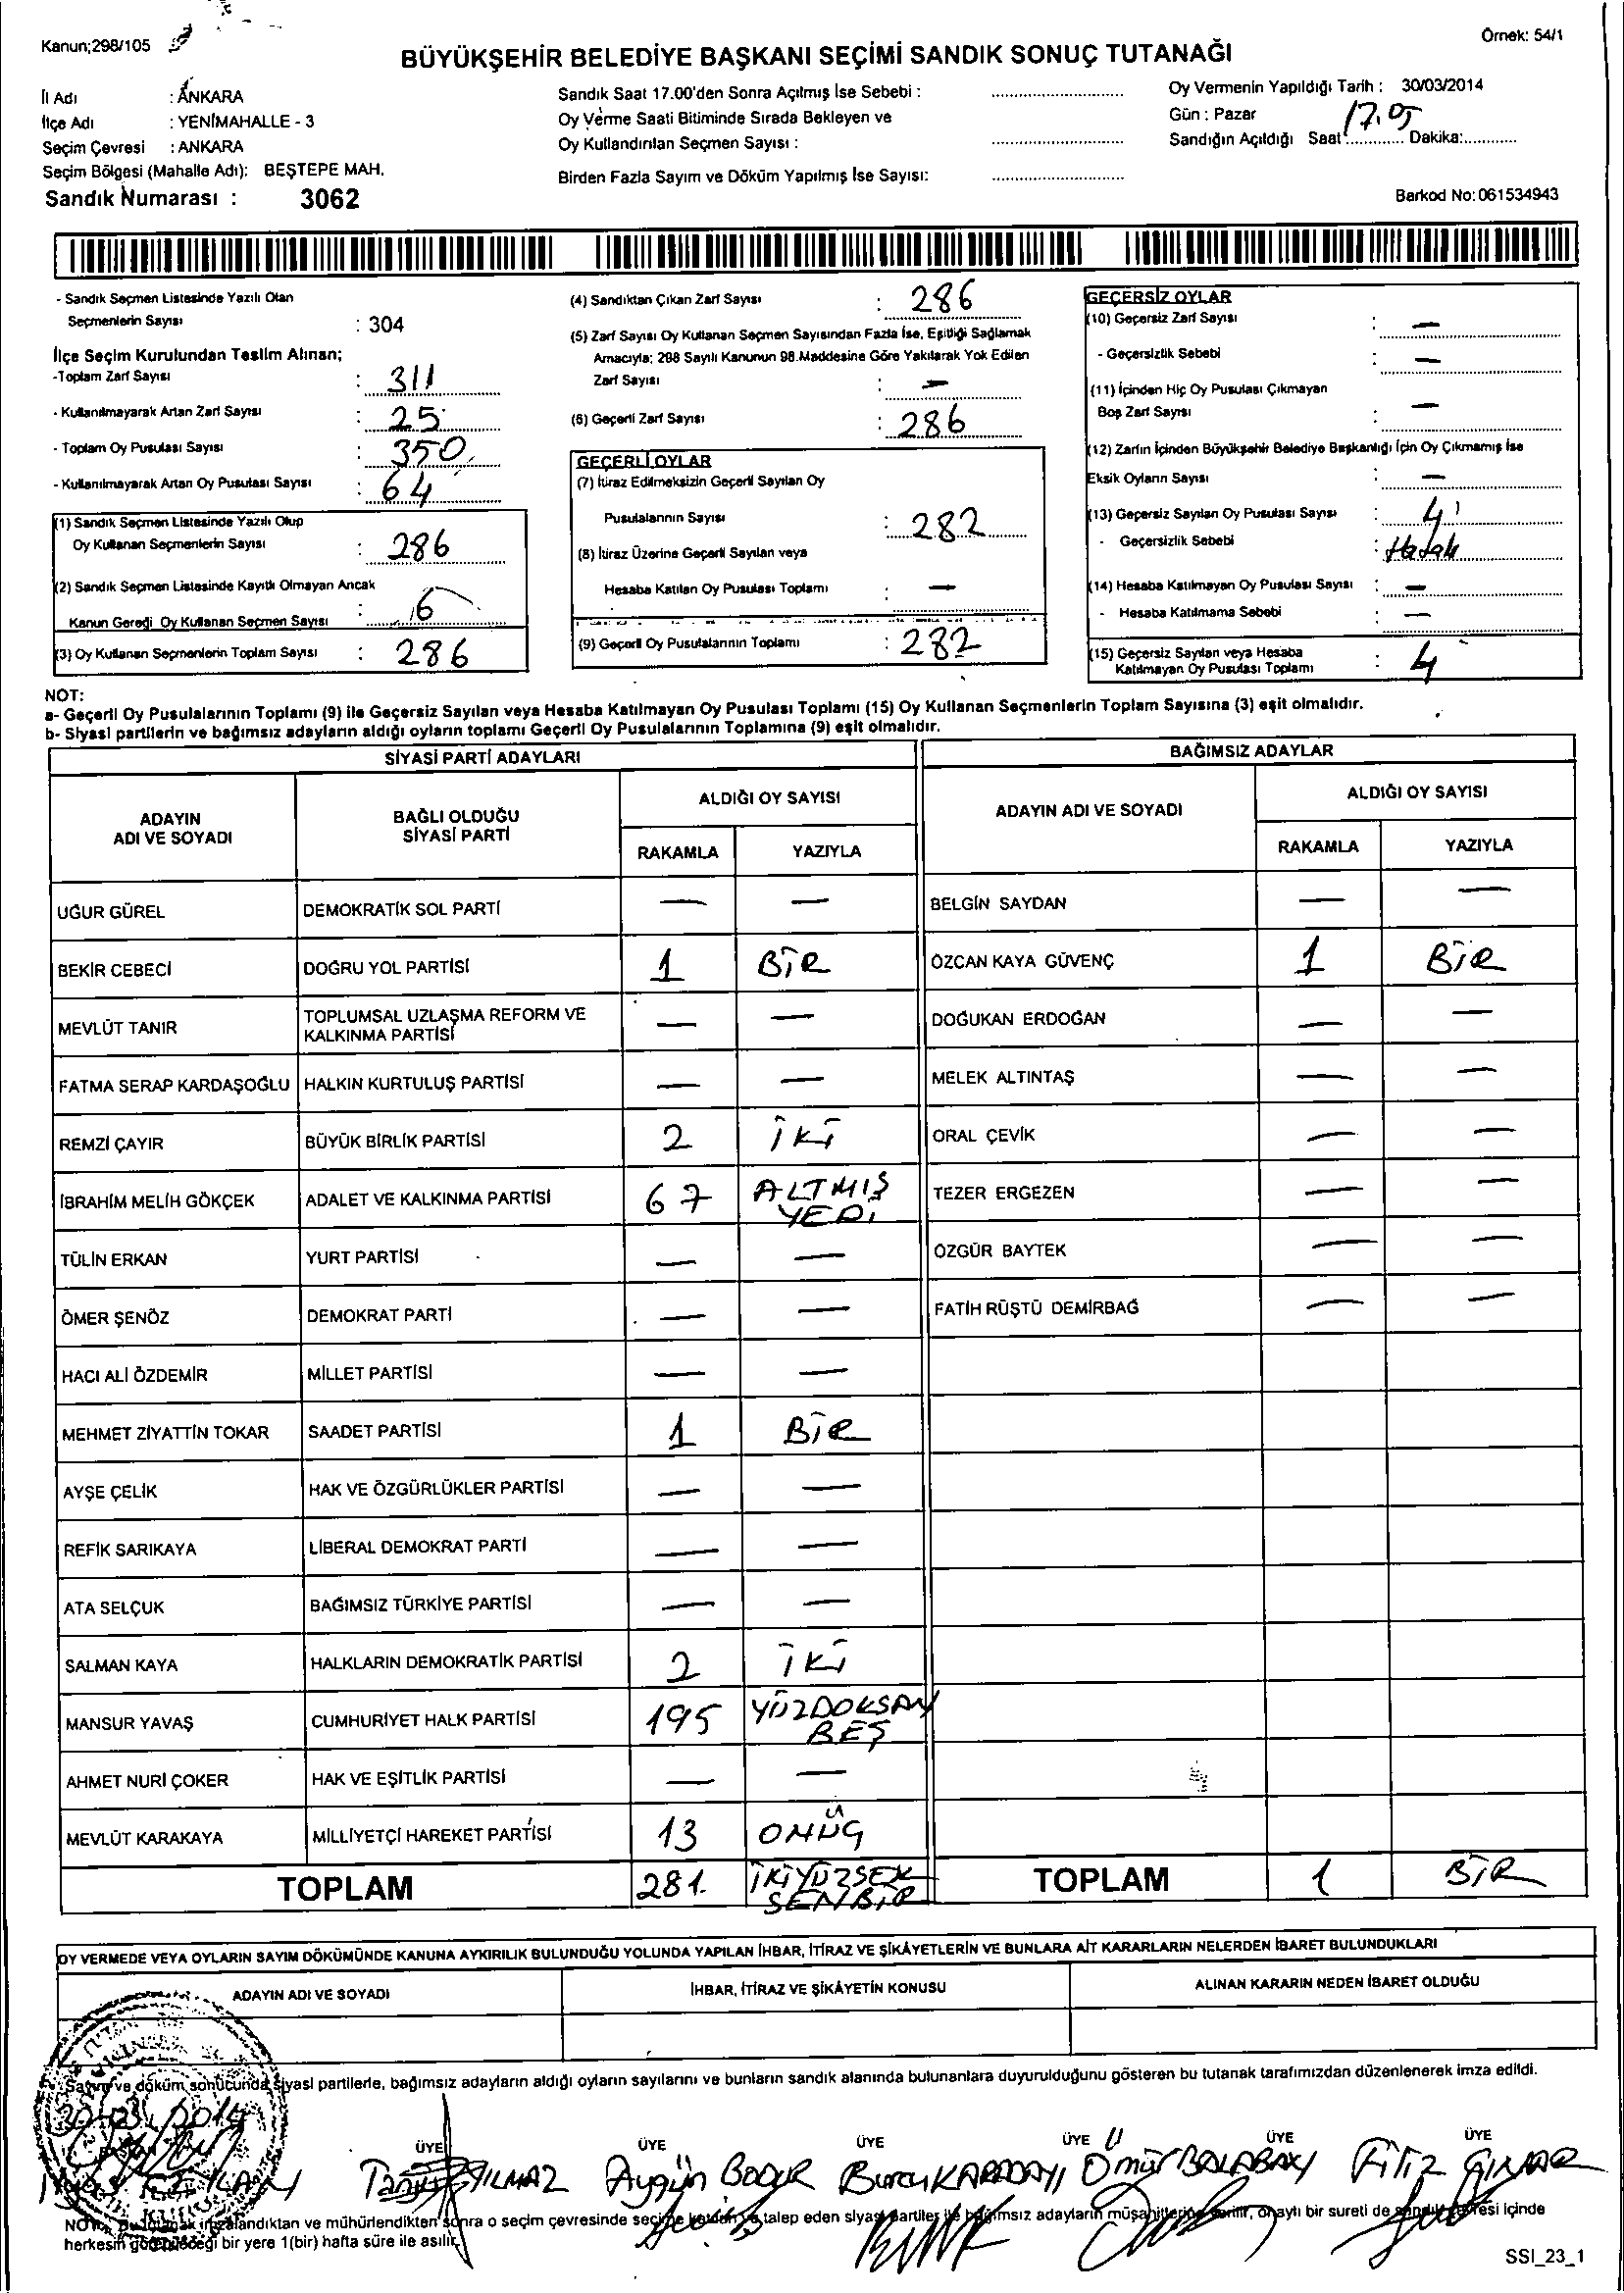 Kanun;298/105
Örnek: 54/1
BÜYÜKŞEHİR BELEDİYE BAŞKANI SEÇİMİ SANDIK SONUÇ TUTANAĞI
İl Adı : ANKARA
İlçe Adı : YENİMAHALLE - 3
Seçim Çevresi : ANKARA
Seçim Bölgesi (Mahalle Adı): BEŞTEPE MAH.
Sandık Numarası : 3062
Sandık Saat 17.00'den Sonra Açılmış İse Sebebi :
Oy Verme Saati Bitiminde Sırada Bekleyen ve
Oy Kullandırılan Seçmen Sayısı :
Birden Fazla Sayım ve Döküm Yapılmış İse Sayısı:
Oy Vermenin Yapıldığı Tarih : 30/03/2014
Gün : Pazar
Sandığın Açıldığı Saat 17.05 Dakika:
Barkod No:061534943
- Sandık Seçmen Listesinde Yazılı Olan
Seçmenlerin Sayısı : 304
İlçe Seçim Kurulundan Teslim Alınan;
-Toplam Zarf Sayısı : 311
- Kullanılmayarak Artan Zarf Sayısı : 25
- Toplam Oy Pusulası Sayısı : 350
- Kullanılmayarak Artan Oy Pusulası Sayısı : 64
(1) Sandık Seçmen Listesinde Yazılı Olup
Oy Kullanan Seçmenlerin Sayısı : 286
(2) Sandık Seçmen Listesinde Kayıtlı Olmayan Ancak
Kanun Gereği Oy Kullanan Seçmen Sayısı : 6
(3) Oy Kullanan Seçmenlerin Toplam Sayısı : 286
(4) Sandıktan Çıkan Zarf Sayısı : 286
(5) Zarf Sayısı Oy Kullanan Seçmen Sayısından Fazla İse, Eşitliği Sağlamak
Amacıyla; 298 Sayılı Kanunun 98.Maddesine Göre Yakılarak Yok Edilen
Zarf Sayısı : —
(6) Geçerli Zarf Sayısı : 286
GEÇERLİ OYLAR
(7) İtiraz Edilmeksizin Geçerli Sayılan Oy
Pusulalarının Sayısı : 282
(8) İtiraz Üzerine Geçerli Sayılan veya
Hesaba Katılan Oy Pusulası Toplamı : —
(9) Geçerli Oy Pusulalarının Toplamı : 282
GEÇERSİZ OYLAR
(10) Geçersiz Zarf Sayısı : —
- Geçersizlik Sebebi : —
(11) İçinden Hiç Oy Pusulası Çıkmayan
Boş Zarf Sayısı : —
(12) Zarfın İçinden Büyükşehir Belediye Başkanlığı İçin Oy Çıkmamış İse
Eksik Oyların Sayısı : —
(13) Geçersiz Sayılan Oy Pusulası Sayısı : 4
- Geçersizlik Sebebi : Hatalı
(14) Hesaba Katılmayan Oy Pusulası Sayısı : —
- Hesaba Katılmama Sebebi : —
(15) Geçersiz Sayılan veya Hesaba
Katılmayan Oy Pusulası Toplamı : 4
NOT:
a- Geçerli Oy Pusulalarının Toplamı (9) ile Geçersiz Sayılan veya Hesaba Katılmayan Oy Pusulası Toplamı (15) Oy Kullanan Seçmenlerin Toplam Sayısına (3) eşit olmalıdır.
b- Siyasi partilerin ve bağımsız adayların aldığı oyların toplamı Geçerli Oy Pusulalarının Toplamına (9) eşit olmalıdır.
SİYASİ PARTİ ADAYLARI
ADAYIN ADI VE SOYADI BAĞLI OLDUĞU SİYASİ PARTİ ALDIĞI OY SAYISI
RAKAMLA YAZIYLA
UĞUR GÜREL DEMOKRATİK SOL PARTİ — —
BEKİR CEBECİ DOĞRU YOL PARTİSİ 1 BİR
MEVLÜT TANIR TOPLUMSAL UZLAŞMA REFORM VE KALKINMA PARTİSİ — —
FATMA SERAP KARDAŞOĞLU HALKIN KURTULUŞ PARTİSİ — —
REMZİ ÇAYIR BÜYÜK BİRLİK PARTİSİ 2 İKİ
İBRAHİM MELİH GÖKÇEK ADALET VE KALKINMA PARTİSİ 67 ALTMIŞ YEDİ
TÜLİN ERKAN YURT PARTİSİ — —
ÖMER ŞENÖZ DEMOKRAT PARTİ — —
HACI ALİ ÖZDEMİR MİLLET PARTİSİ — —
MEHMET ZİYATTİN TOKAR SAADET PARTİSİ 1 BİR
AYŞE ÇELİK HAK VE ÖZGÜRLÜKLER PARTİSİ — —
REFİK SARIKAYA LİBERAL DEMOKRAT PARTİ — —
ATA SELÇUK BAĞIMSIZ TÜRKİYE PARTİSİ — —
SALMAN KAYA HALKLARIN DEMOKRATİK PARTİSİ 2 İKİ
MANSUR YAVAŞ CUMHURİYET HALK PARTİSİ 195 YÜZDOKSAN BEŞ
AHMET NURİ ÇOKER HAK VE EŞİTLİK PARTİSİ — —
MEVLÜT KARAKAYA MİLLİYETÇİ HAREKET PARTİSİ 13 ONÜÇ
TOPLAM 281 İKİYÜZSEKSENBİR
BAĞIMSIZ ADAYLAR
ADAYIN ADI VE SOYADI ALDIĞI OY SAYISI
RAKAMLA YAZIYLA
BELGİN SAYDAN — —
ÖZCAN KAYA GÜVENÇ 1 BİR
DOĞUKAN ERDOĞAN — —
MELEK ALTINTAŞ — —
ORAL ÇEVİK — —
TEZER ERGEZEN — —
ÖZGÜR BAYTEK — —
FATİH RÜŞTÜ DEMİRBAĞ — —
TOPLAM 1 BİR
OY VERMEDE VEYA OYLARIN SAYIM DÖKÜMÜNDE KANUNA AYKIRILIK BULUNDUĞU YOLUNDA YAPILAN İHBAR, İTİRAZ VE ŞİKÂYETLERİN VE BUNLARA AİT KARARLARIN NELERDEN İBARET BULUNDUKLARI
ADAYIN ADI VE SOYADI İHBAR, İTİRAZ VE ŞİKÂYETİN KONUSU ALINAN KARARIN NEDEN İBARET OLDUĞU
Sayım ve döküm sonucunda siyasi partilerle, bağımsız adayların aldığı oyların sayılarını ve bunların sandık alanında bulunanlara duyurulduğunu gösteren bu tutanak tarafımızdan düzenlenerek imza edildi.
ÜYE ÜYE ÜYE ÜYE ÜYE ÜYE
YILMAZ Aygün Burcu KARADAYI Ömür BALABAN Filiz
NOT: Bu tutanak imzalandıktan ve mühürlendikten sonra o seçim çevresinde seçime katılan ve talep eden siyasi partiler ile bağımsız adayların müşahitlerine verilir, onaylı bir sureti de sandık çevresi içinde
herkesin görebileceği bir yere 1(bir) hafta süre ile asılır.
SSI_23_1